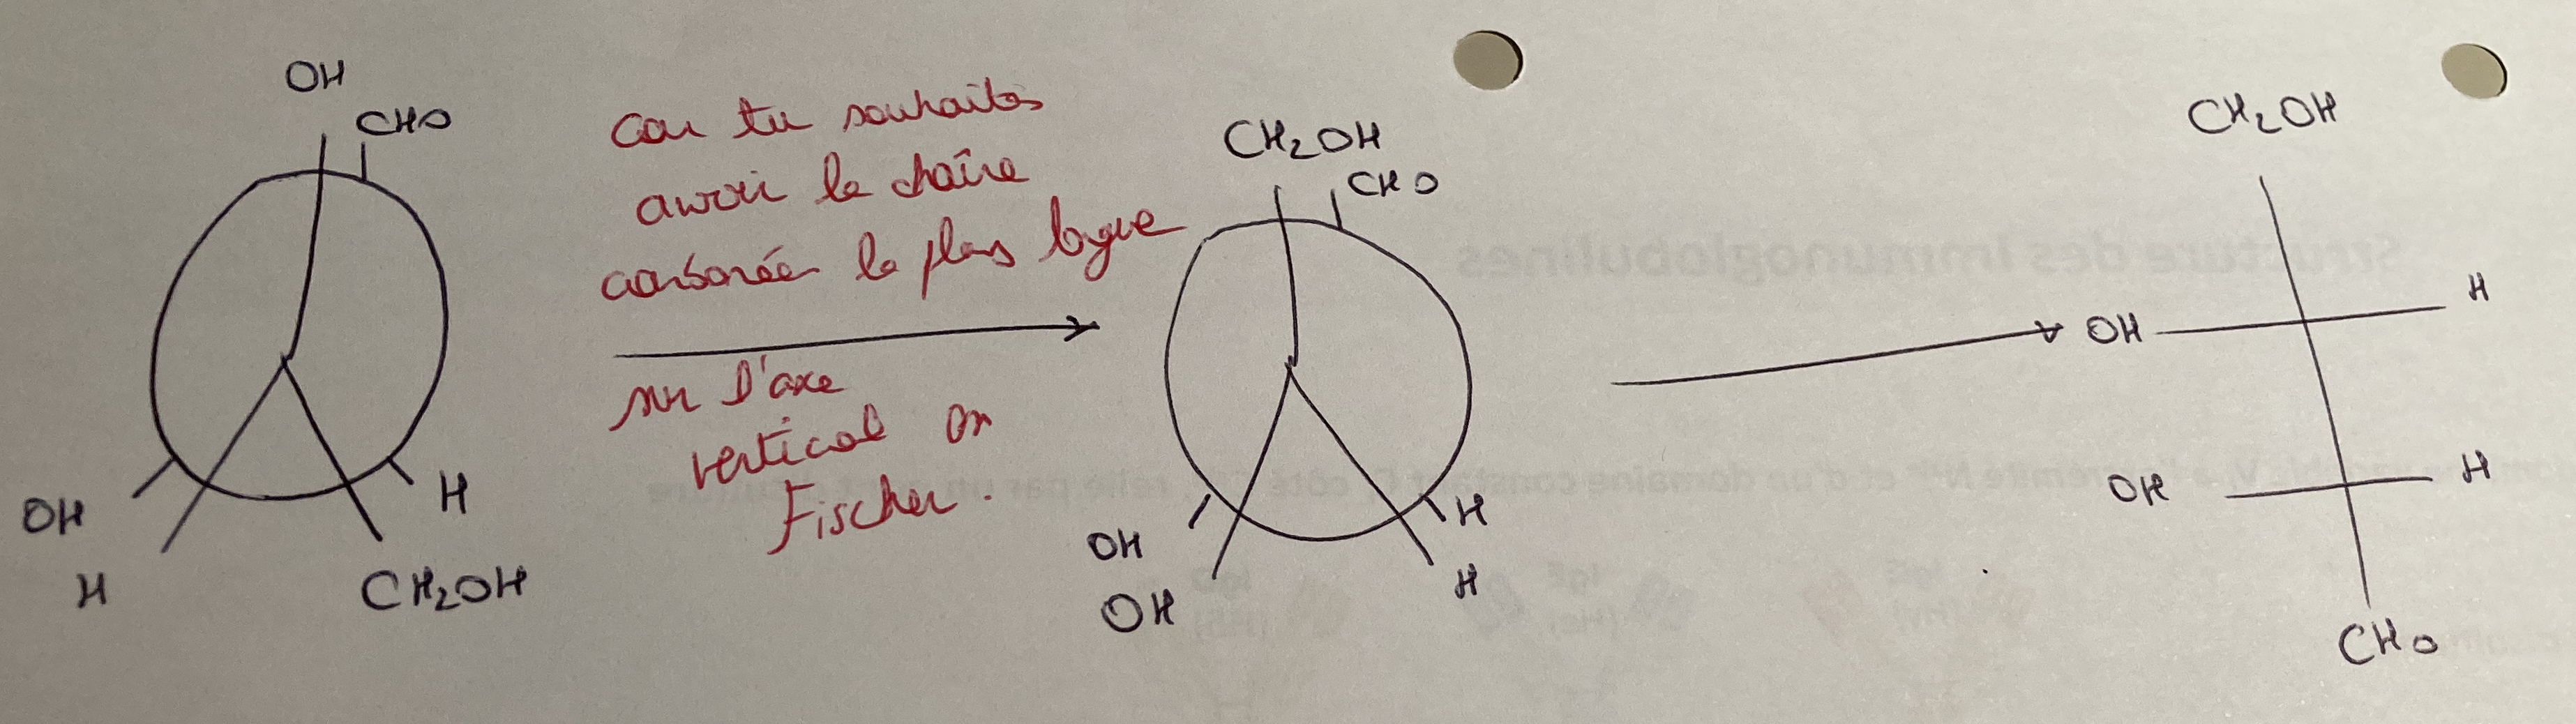 OH
CHO
OH
H
H
CH2OH
car tu souhaites
avoir la chaîne
carbonée la plus longue
sur l'axe
vertical en
Fischer.
CH2OH
CHO
OH
OH
H
H
CH2OH
OH
H
OH
H
CHO
Structure des Immunoglobulines